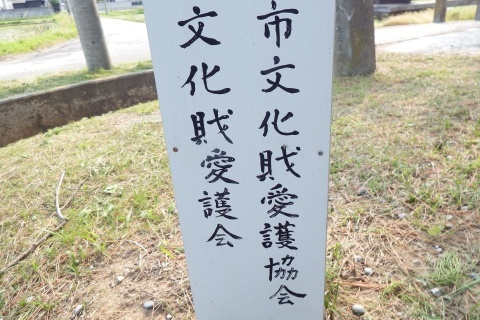 市文化財愛護協会
文化財愛護会